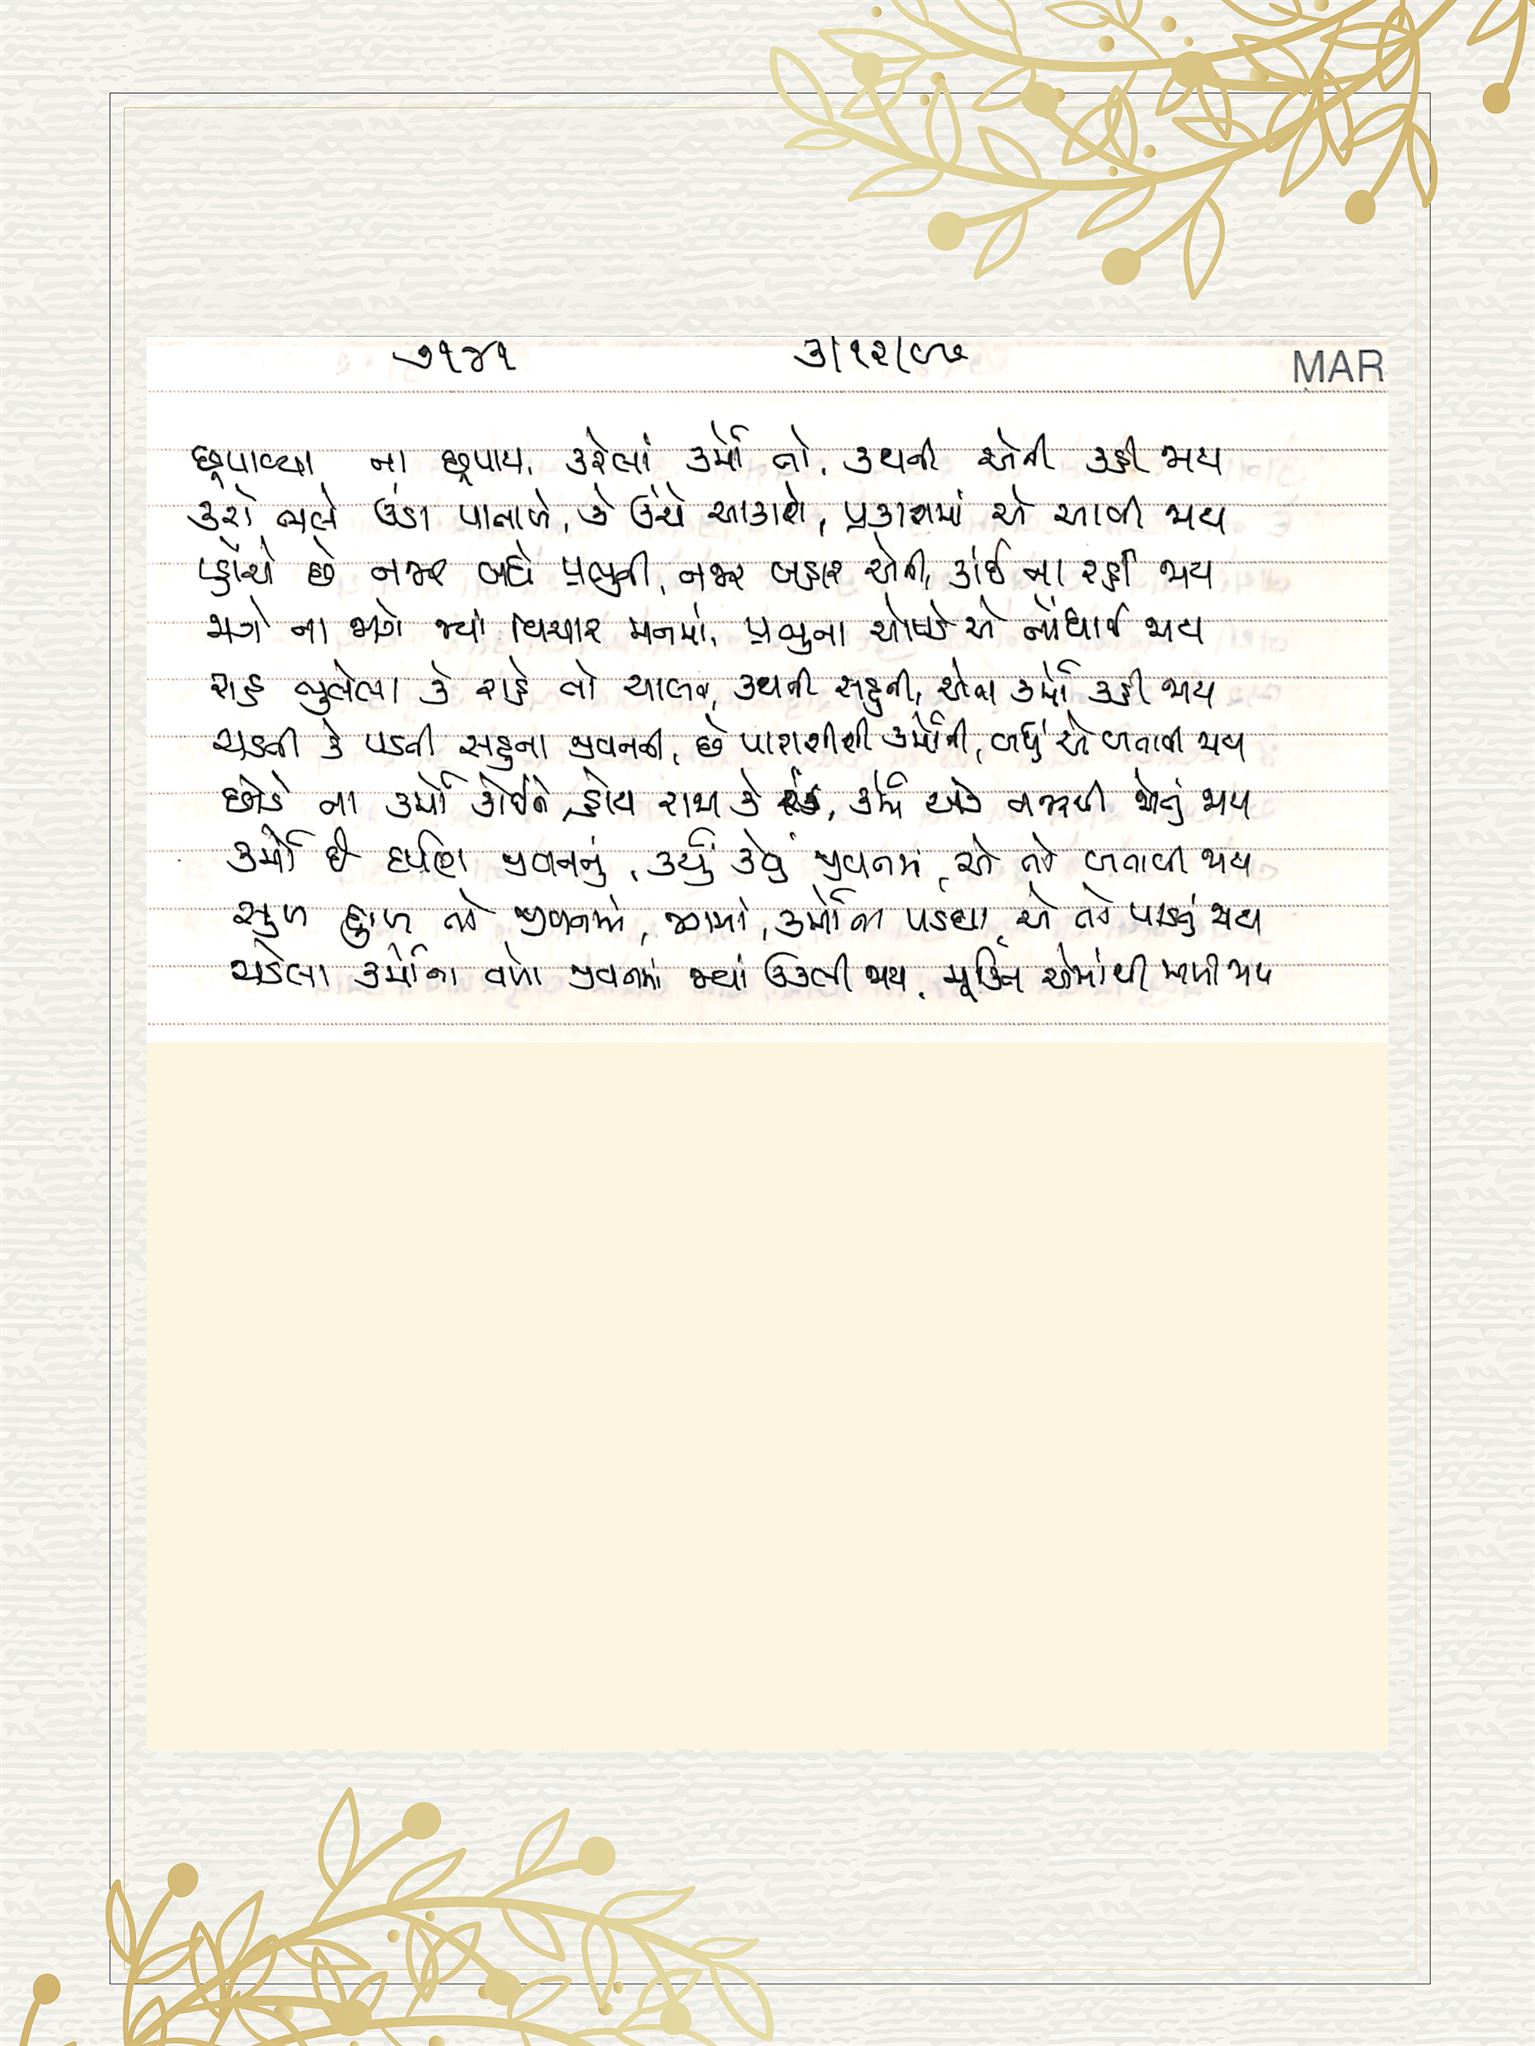 ૭૧૪૧ ૩/૧૨/૯૭ MAR
છૂપાવ્યા ના છૂપાય, કરેલાં કર્મો તો, કથની એની કહી જાય
કરો ભલે ઉંડા પાતાળે, કે ઉંચે આકાશે, પ્રકાશમાં એ આવી જાય
પ્હોંચે છે નજર બધે પ્રભુની, નજર બહાર એની, કાંઈ ના રહી જાય
જાગે ના જાગે જ્યાં વિચાર મનમાં, પ્રભુના ચોપડે એ નોંધાઈ જાય
રાહ ભુલેલા કે રાહે તો ચાલતા, કથની સહુની, એના કર્મો કહી જાય
ચડતી કે પડતી સહુના જીવનની, છે પારાશીશી કર્મોની, બધું એ બતાવી જાય
છોડે ના કર્મો કોઈને, હોય રાય કે રંક, કર્મ એક નજરથી જોતું જાય
કર્મો છે દર્પણ જીવનનું, કર્યું કેવું જીવનમાં, એ તો બતાવી જાય
સુખ દુઃખ તો જીવનમાં, જગમાં, કર્મોના પડઘા, એ તો પાડતું જાય
ચડેલા કર્મોના વળો જીવનમાં જ્યાં ઉકલી જાય, મૂક્તિ એમાંથી મળી જાય